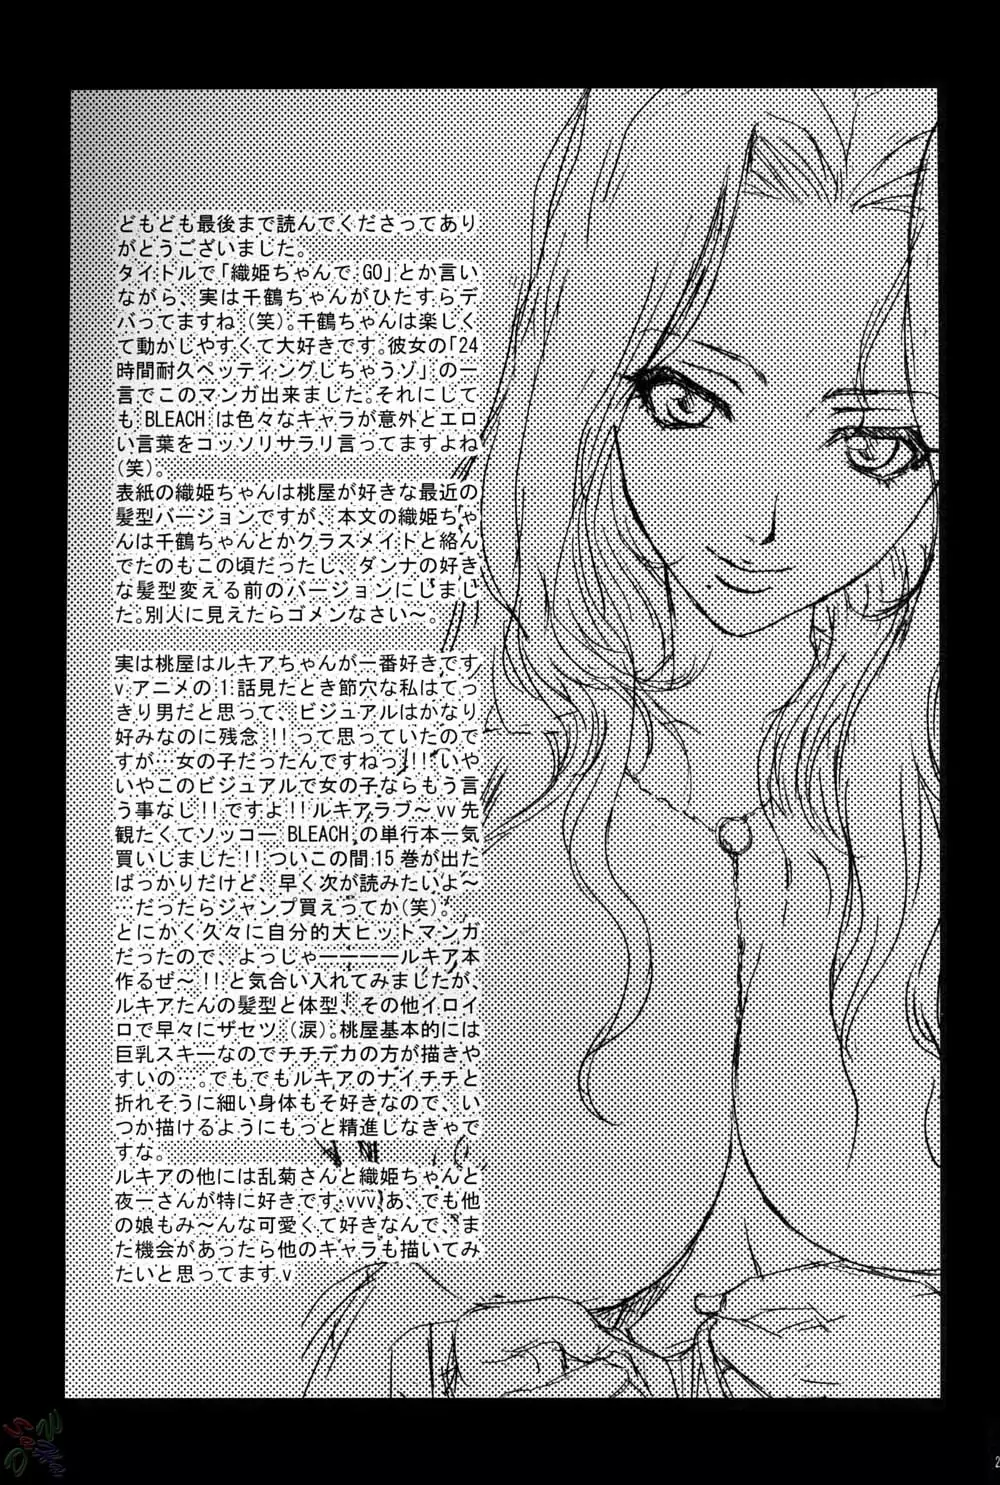 どもども最後まで読んでくださってあり
がとうございました。
タイトルで「織姫ちゃんで GO」とか言い
ながら、実は千鶴ちゃんがひたすらデ
バってますね（笑）。千鶴ちゃんは楽しく
て動かしやすくて大好きです。彼女の「24
時間耐久ペッティングしちゃうゾ」の一
言でこのマンガ出来ました。それにして
も BLEACH は色々なキャラが意外とエロ
い言葉をコッソリサラリ言ってますよね
（笑）。
表紙の織姫ちゃんは桃屋が好きな最近の
髪型バージョンですが、本文の織姫ちゃ
んは千鶴ちゃんとかクラスメイトと絡ん
でたのもこの頃だったし、ダンナの好き
な髪型変える前のバージョンにしまし
た。別人に見えたらゴメンなさい～。
実は桃屋はルキアちゃんが一番好きです
v アニメの 1 話見たとき節穴な私はてっ
きり男だと思って、ビジュアルはかなり
好みなのに残念!!って思っていたので
すが…女の子だったんですねっ!!いや
いやこのビジュアルで女の子ならもう言
う事なし!!ですよ!!ルキアラブ～vv 先
観たくてソッコー BLEACH の単行本一気
買いしました!!ついこの間 15 巻が出た
ばっかりだけど、早く次が読みたいよ～
…だったらジャンプ買えってか（笑）。
とにかく久々に自分的大ヒットマンガ
だったので、よっしゃーーーールキア本
作るぜ～!!と気合い入れてみましたが、
ルキアたんの髪型と体型、その他イロイ
ロで早々にザセツ（涙）。桃屋基本的には
巨乳スキーなのでチチデカの方が描きや
すいの…。でもでもルキアのナイチチと
折れそうに細い身体もそ好きなので、い
つか描けるようにもっと精進しなきゃで
すな。
ルキアの他には乱菊さんと織姫ちゃんと
夜一さんが特に好きです vvv あ、でも他
の娘もみ～んな可愛くて好きなんで、ま
た機会があったら他のキャラも描いてみ
たいと思ってます v
2